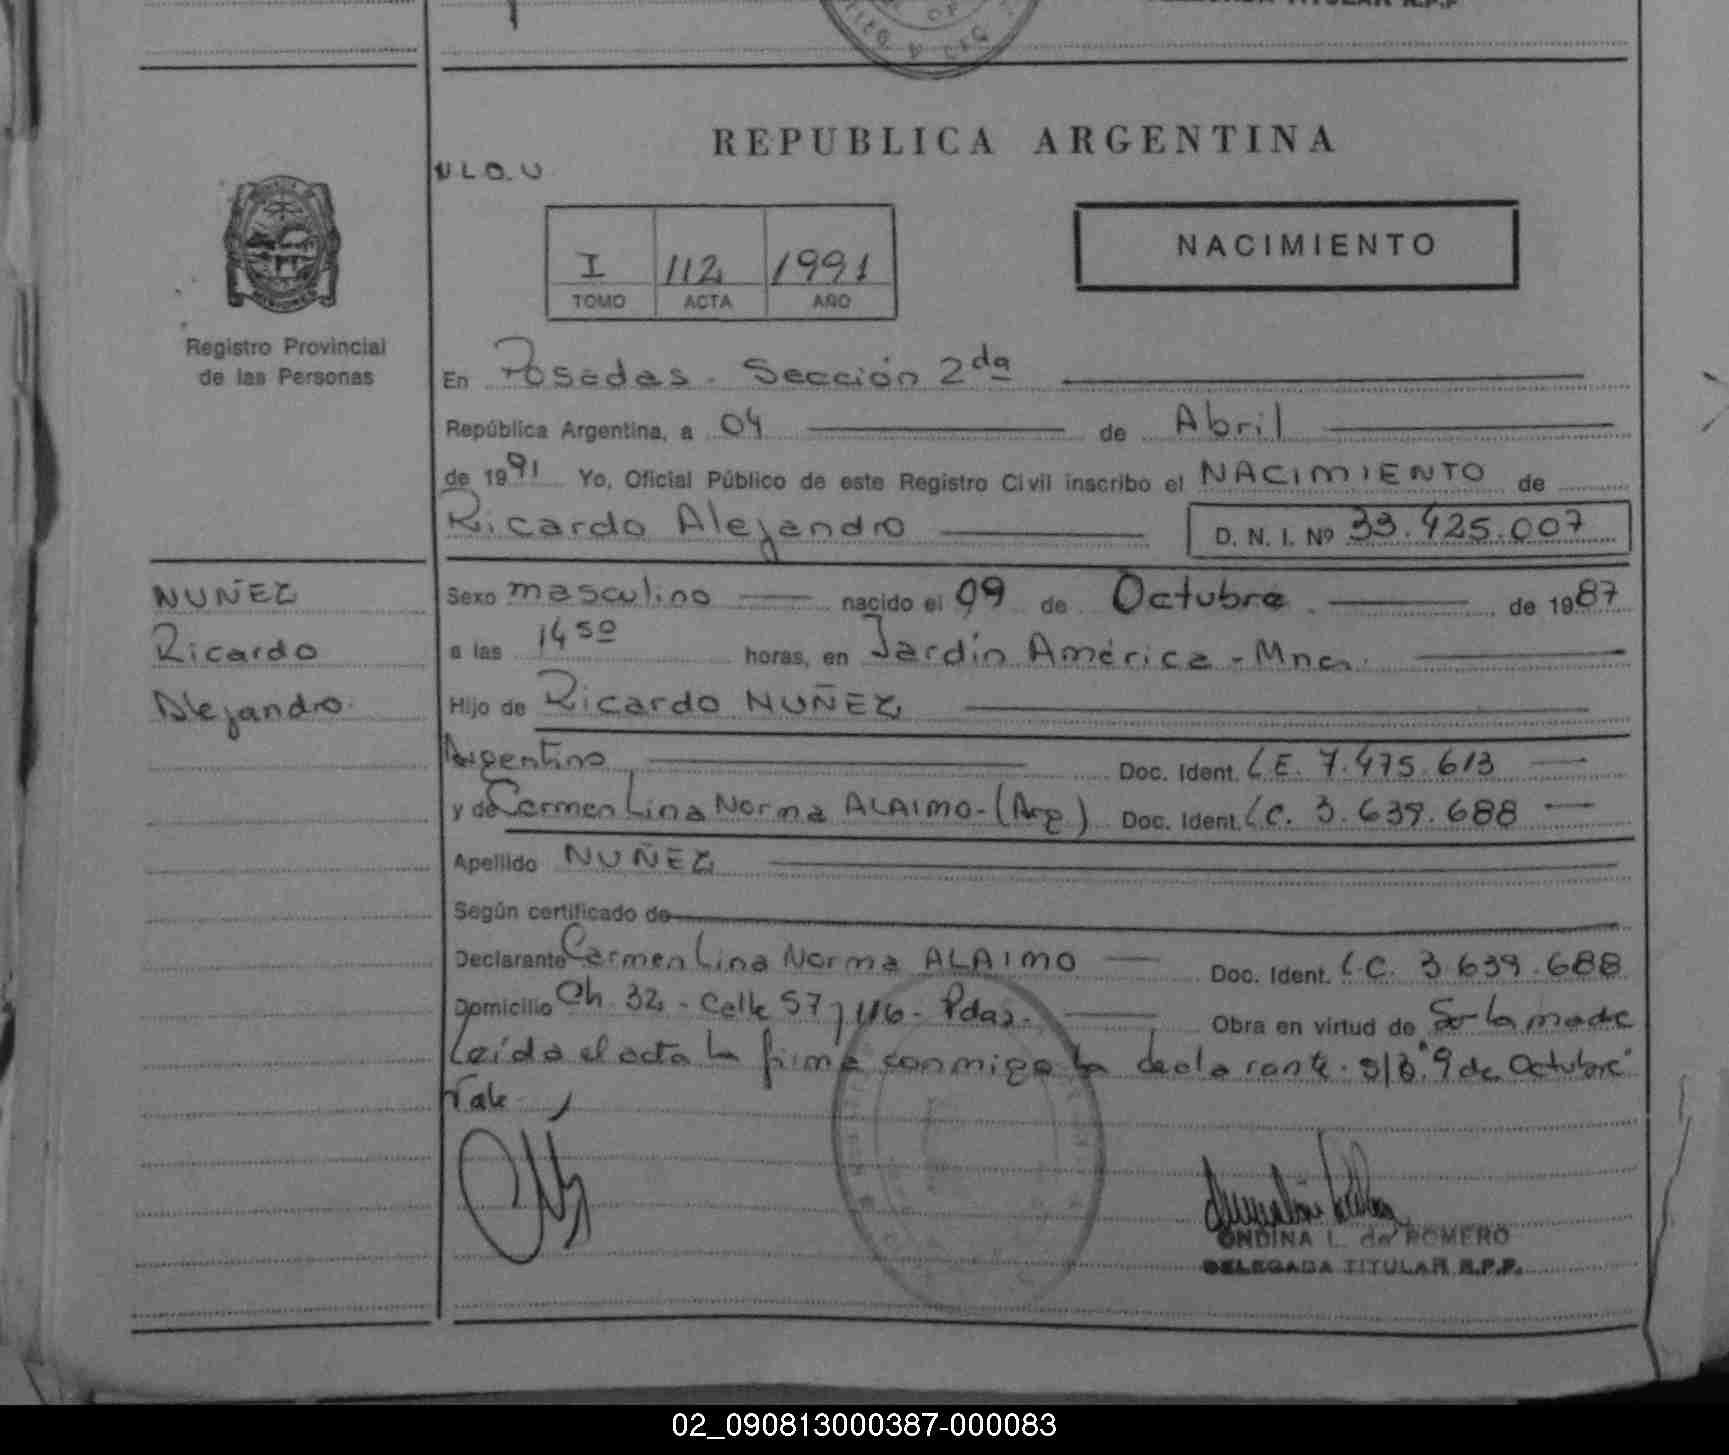 DELEGADA TITULAR R.P.P
REPUBLICA ARGENTINA
N L O. U
NACIMIENTO
I 112 1991
TOMO ACTA AÑO
Registro Provincial
de las Personas
En Posadas. Sección 2da
República Argentina, a 04 de Abril
de 1991 Yo, Oficial Público de este Registro Civil inscribo el NACIMIENTO de
Ricardo Alejandro D. N. I. Nº 33.425.007
NUÑEZ
Ricardo
Alejandro
Sexo masculino nacido el 09 de Octubre de 1987
a las 14 50 horas, en Jardín América - Mnes.
Hijo de Ricardo NUÑEZ
Argentino Doc. Ident. L.E. 7.475.613
y de Carmen Lina Norma ALAIMO - (Arg) Doc. Ident. L.C. 3.639.688
Apellido NUÑEZ
Según certificado de
Declarante Carmen Lina Norma ALAIMO Doc. Ident. L.C. 3.639.688
Domicilio Ch. 32 - Calle 57 y 116 - Pdas. Obra en virtud de Ser la madre
Leída el acta la firma conmigo la declarante. S/B "9 de Octubre"
Vale
ONDINA L. de ROMERO
DELEGADA TITULAR R.P.P.
02_090813000387-000083